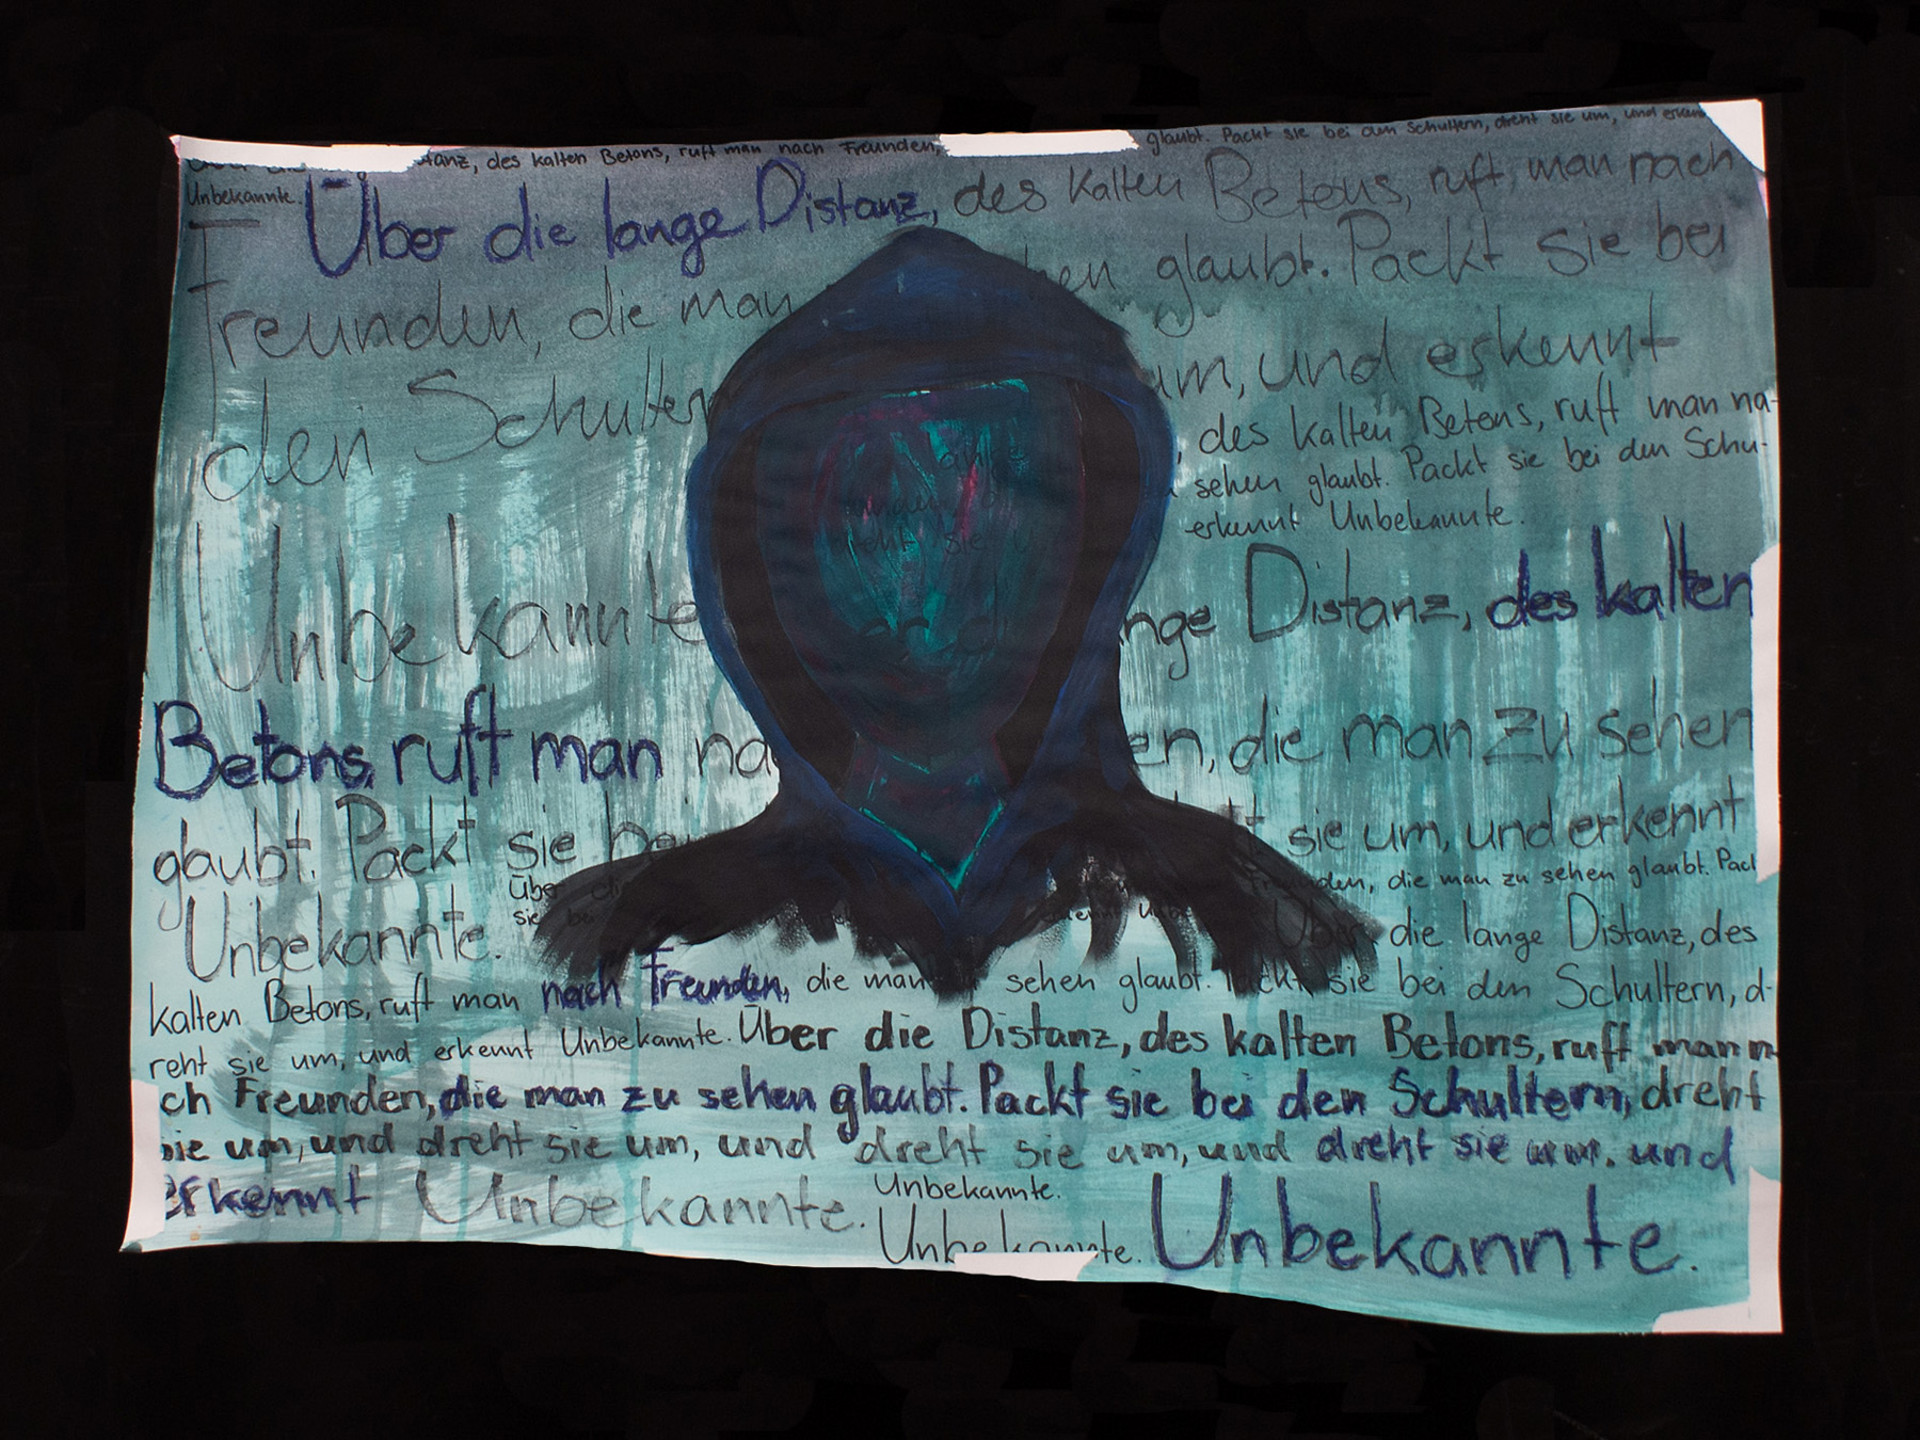 tanz, des kalten Betons, ruft man nach Freunden, glaubt. Packt sie bei den Schultern, dreht sie um, und erkennt
Unbekannte.
Über die lange Distanz, des kalten Betons, ruft man nach
Freunden, die man hen glaubt. Packt sie bei
den Schultern um, und erkennt
, des kalten Betons, ruft man na-
sehen glaubt. Packt sie bei den Schu-
erkennt Unbekannte.
Unbekannte nge Distanz, des kalten
Betons, ruft man na en, die man zu sehen
glaubt. Packt sie be t sie um, und erkennt
Über die Freunden, die man zu sehen glaubt. Pack
sie bei erkennt Unbe
Unbekannte. Über die lange Distanz, des
kalten Betons, ruft man nach Freunden, die man sehen glaubt. Packt sie bei den Schultern, d-
reht sie um, und erkennt Unbekannte. Über die Distanz, des kalten Betons, ruft man n
ch Freunden, die man zu sehen glaubt. Packt sie bei den Schultern, dreht
sie um, und dreht sie um, und dreht sie um, und dreht sie um, und
erkennt Unbekannte. Unbekannte.
Unbekannte. Unbekannte.